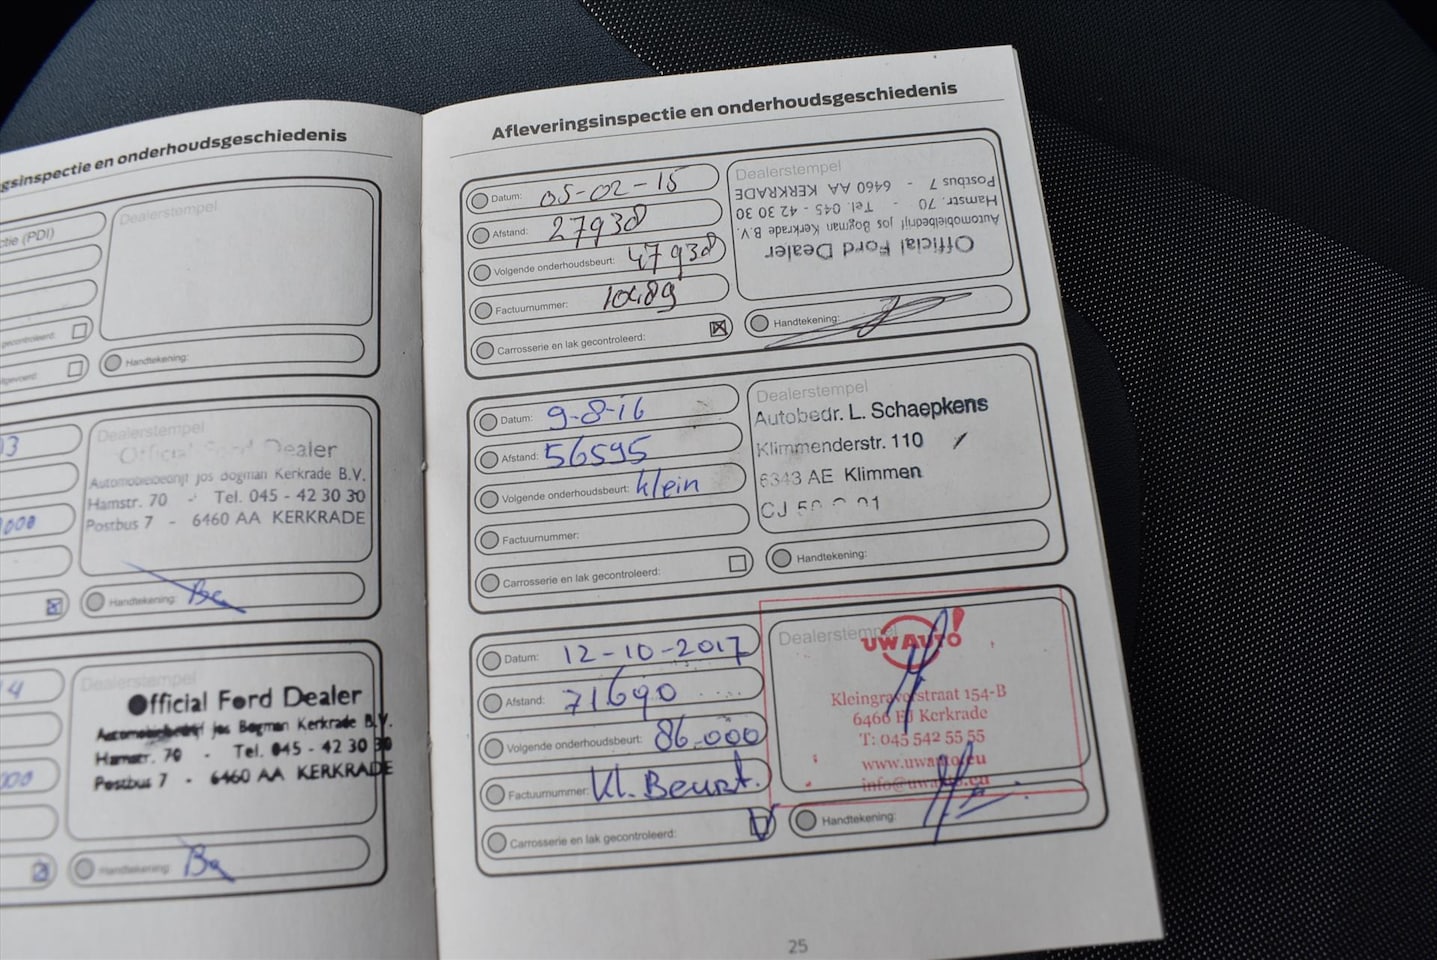 gsinspectie en onderhoudsgeschiedenis
ctie (PDI)
Dealerstempel
gecontroleerd:
Handtekening:
Dealerstempel
Official Ford Dealer
Automobielbedrijf jos Bogman Kerkrade B.V.
Hamstr. 70 - Tel. 045 - 42 30 30
Postbus 7 - 6460 AA KERKRADE
Handtekening:
Dealerstempel
Official Ford Dealer
Automobielbedrijf jos Bogman Kerkrade B.V.
Hamstr. 70 - Tel. 045 - 42 30 30
Postbus 7 - 6460 AA KERKRADE
Handtekening:
Afleveringsinspectie en onderhoudsgeschiedenis
Datum: 05-02-15
Afstand: 27938
Volgende onderhoudsbeurt: 47938
Factuurnummer:
Carrosserie en lak gecontroleerd:
Dealerstempel
Official Ford Dealer
Automobielbedrijf jos Bogman Kerkrade B.V.
Hamstr. 70 - Tel. 045 - 42 30 30
Postbus 7 - 6460 AA KERKRADE
Handtekening:
Datum: 9-8-16
Afstand: 56595
Volgende onderhoudsbeurt: klein
Factuurnummer:
Carrosserie en lak gecontroleerd:
Dealerstempel
Autobedr. L. Schaepkens
Klimmenderstr. 110
6343 AE Klimmen
Handtekening:
Datum: 12-10-2017
Afstand: 71690
Volgende onderhoudsbeurt: 86.000
Factuurnummer: Kl. Beurt.
Carrosserie en lak gecontroleerd:
Dealerstempel
UW AUTO!
Kleingraverstraat 154-B
6466 EJ Kerkrade
T: 045 542 55 55
www.uwauto.eu
info@uwauto.eu
Handtekening:
25